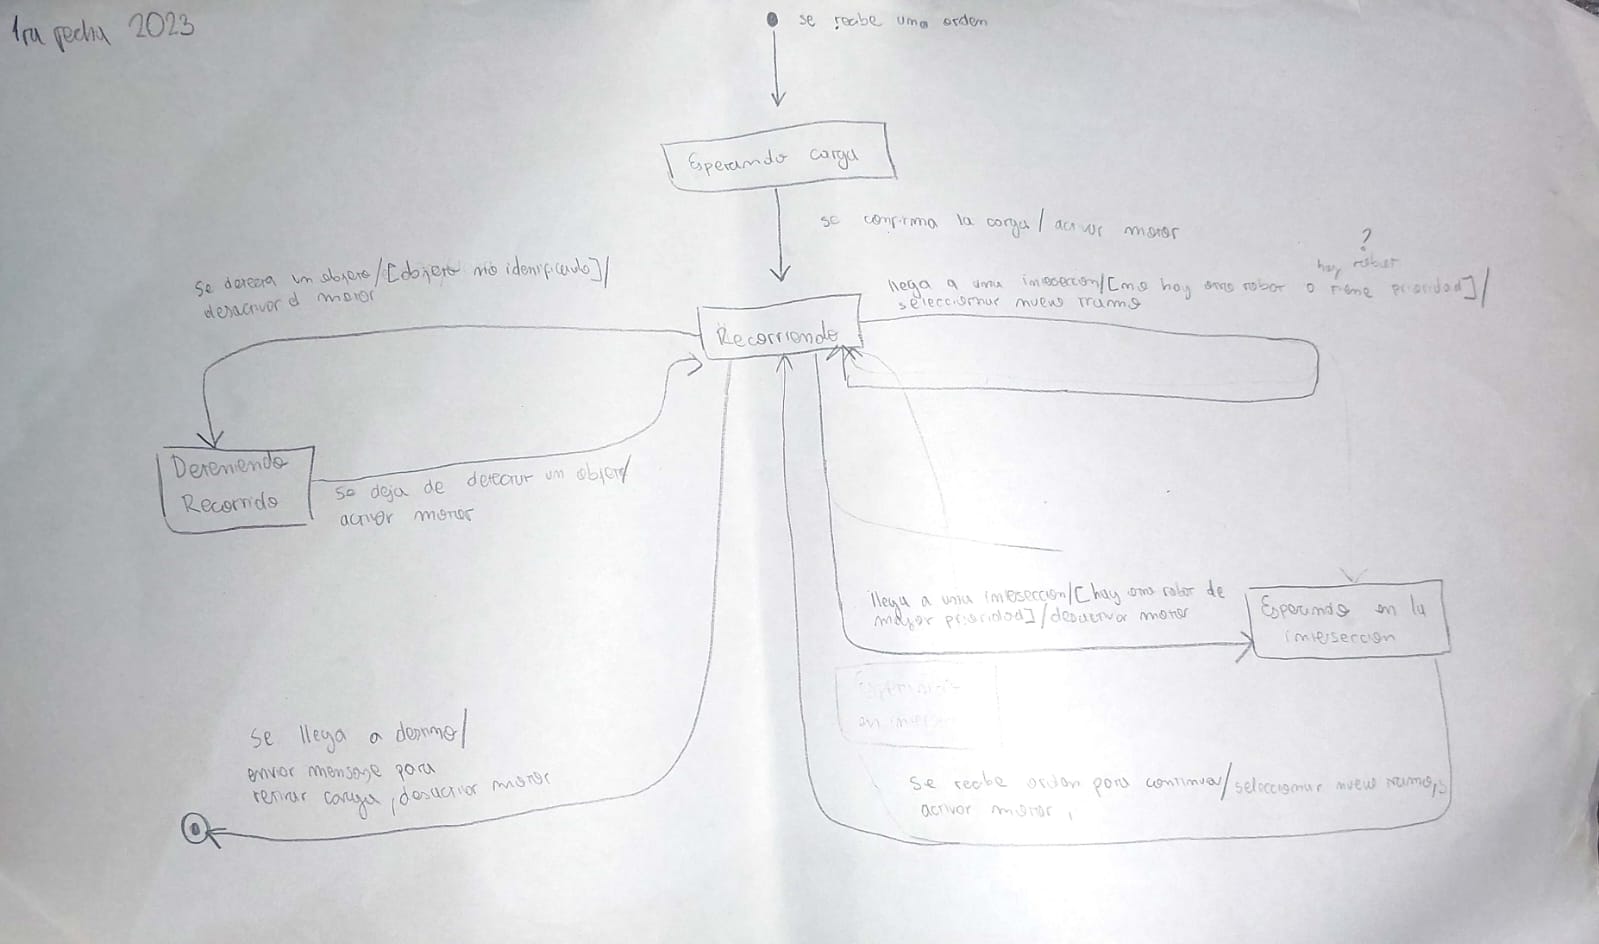 1ra fecha 2023
se recibe una orden
Esperando carga
se confirma la carga / activar motor
?
hay robot
se detecta un objeto/[objeto no identificado]/
desactivar el motor
llega a una interseccion/[no hay otro robot o tiene prioridad]/
seleccionar nuevo tramo
Recorriendo
Deteniendo
Recorrido
se deja de detectar un objeto/
activar motor
llega a una interseccion/[hay otro robot de
mayor prioridad]/desactivar motor
Esperando en la
interseccion
Esperando
en interse
se llega a destino/
enviar mensaje para
retirar carga, desactivar motor
se recibe orden para continuar/seleccionar nuevo tramo,
activar motor,